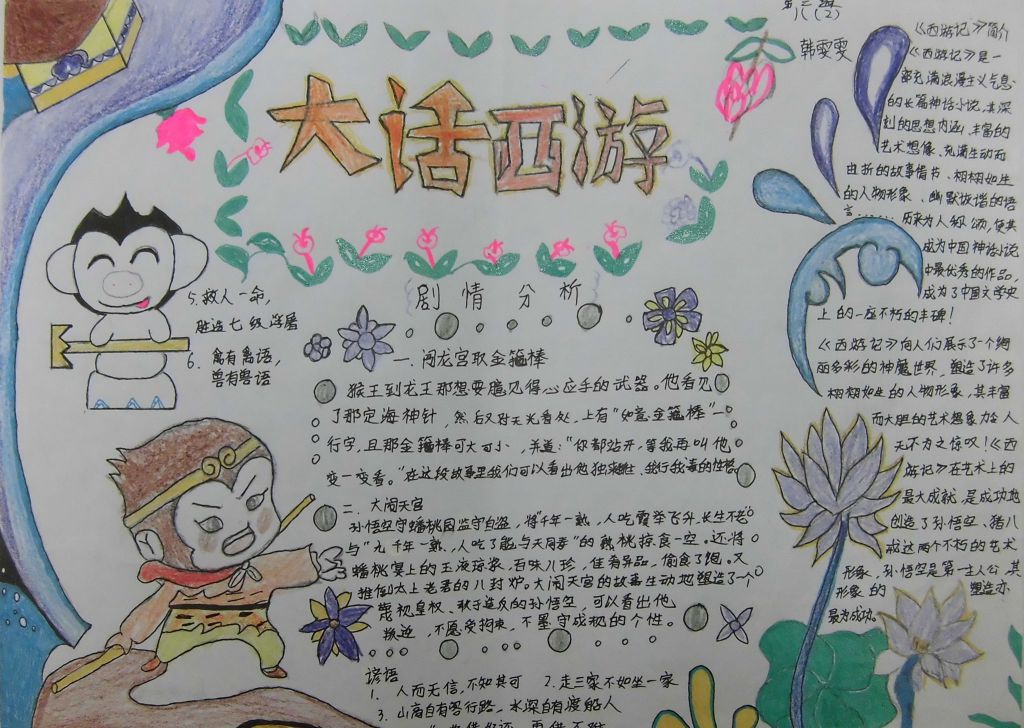 大话西游
韩雯雯
《西游记》简介
《西游记》是一
部充满浪漫主义气息
的长篇神话小说,其深
刻的思想内涵、丰富的
艺术想像、充满生动而
曲折的故事情节、栩栩如生
的人物形象、幽默诙谐的语
言……历来为人称颂,使其
成为中国神话小说
中最优秀的作品,
成为了中国文学史
上的一座不朽的丰碑!
《西游记》向人们展示了一个绚
丽多彩的神魔世界,塑造了许多
栩栩如生的人物形象,其丰富
而大胆的艺术想象力令人
无不为之惊叹!《西
游记》在艺术上的
最大成就,是成功地
创造了孙悟空、猪八
戒这两个不朽的艺术
形象,孙悟空是第一主人公,其
形象的塑造亦
最为成功。
剧情分析
一、闹龙宫取金箍棒
猴王到龙王那想要随见得心应手的武器。他看见
了那定海神针,然后对天光看处,上有“如意金箍棒”一
行字,且那金箍棒可大可小,并道:“你都站开,等我再叫他
变一变看。”在这段故事里我们可以看出他
二、大闹天宫
孙悟空守蟠桃园监守自盗,将“千年一熟,人吃霞举飞升,长生不老”
与“九千年一熟,人吃了能与天同寿”的熟桃掠食一空。还将
蟠桃宴上的玉液琼浆,百味八珍,佳肴异品,偷食了饱。又
推倒太上老君的八封炉。大闹天宫的故事生动地塑造了一个
蔑视皇权、敢于造反的孙悟空,可以看出他
叛逆,不愿受拘束,不墨守成规的个性。
5.救人一命,
胜造七级浮屠
6.禽有禽语,
兽有兽语
谚语
1. 人而无信,不知其可 2.走三家不如坐一家
3.山高自有客行路,水深自有渡船人